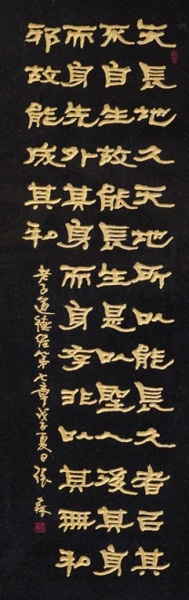 天長地久天地所以能長久者以其
不自生故能長生是以聖人後其身
而身先外其身而身存非以其無私
邪故能成其私
老子道德經第七章戊子夏日張森